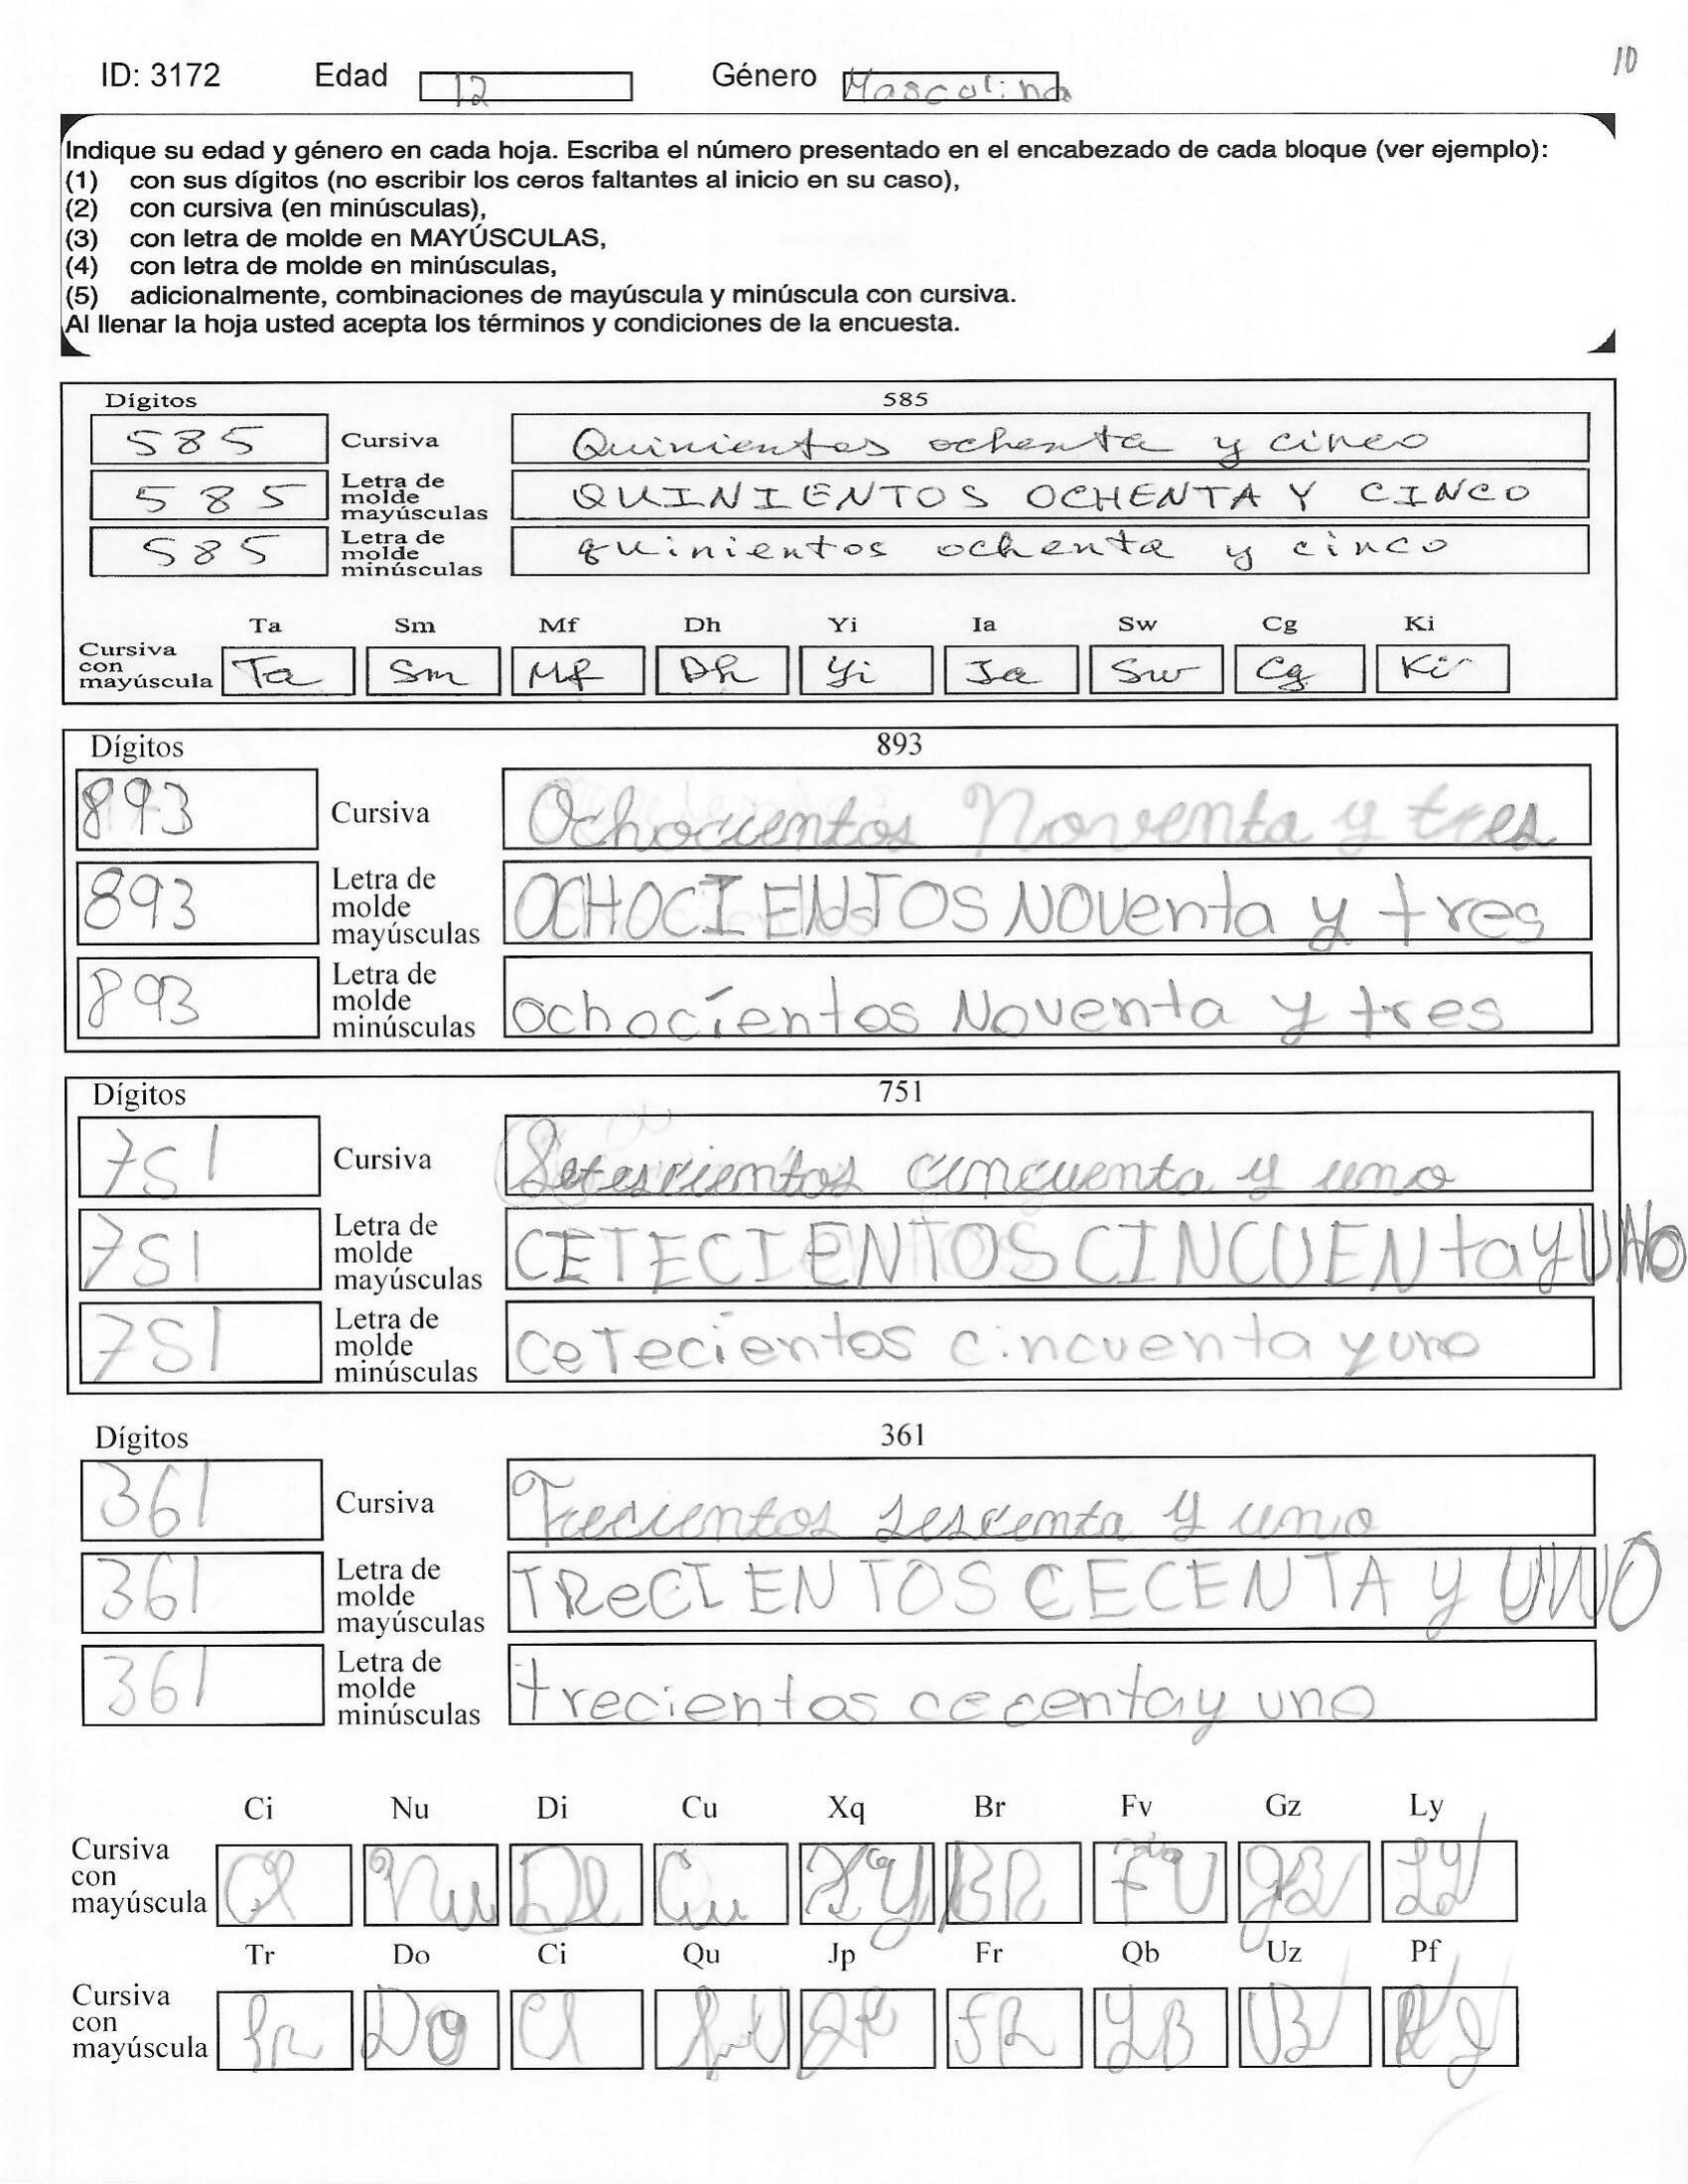 10
ID: 3172 Edad 12 Género Mascolino
Indique su edad y género en cada hoja. Escriba el número presentado en el encabezado de cada bloque (ver ejemplo):
(1) con sus dígitos (no escribir los ceros faltantes al inicio en su caso),
(2) con cursiva (en minúsculas),
(3) con letra de molde en MAYÚSCULAS,
(4) con letra de molde en minúsculas,
(5) adicionalmente, combinaciones de mayúscula y minúscula con cursiva.
Al llenar la hoja usted acepta los términos y condiciones de la encuesta.
Dígitos 585
585 Cursiva Quinientos ochenta y cinco
585 Letra de molde mayúsculas QUINIENTOS OCHENTA Y CINCO
585 Letra de molde minúsculas quinientos ochenta y cinco
Ta Sm Mf Dh Yi Ia Sw Cg Ki
Cursiva con mayúscula Ta Sm Mf Dh Yi Ia Sw Cg Ki
Dígitos 893
893 Cursiva Ochocientos Noventa y tres
893 Letra de molde mayúsculas OCHOCIENTOS NOVenta y tres
893 Letra de molde minúsculas ochocientos Noventa y tres
Dígitos 751
751 Cursiva Setescientos cincuenta y uno
751 Letra de molde mayúsculas CETECIENTOS CINCUENta y UNO
751 Letra de molde minúsculas ceTecientos cincuenta y uno
Dígitos 361
361 Cursiva Trecientos sescenta y uno
361 Letra de molde mayúsculas TReCIENTOS CECENTA y UNO
361 Letra de molde minúsculas trecientos cecenta y uno
Ci Nu Di Cu Xq Br Fv Gz Ly
Cursiva con mayúscula Nu Cu BR FU LY
Tr Do Ci Qu Jp Fr Qb Uz Pf
Cursiva con mayúscula Do FR